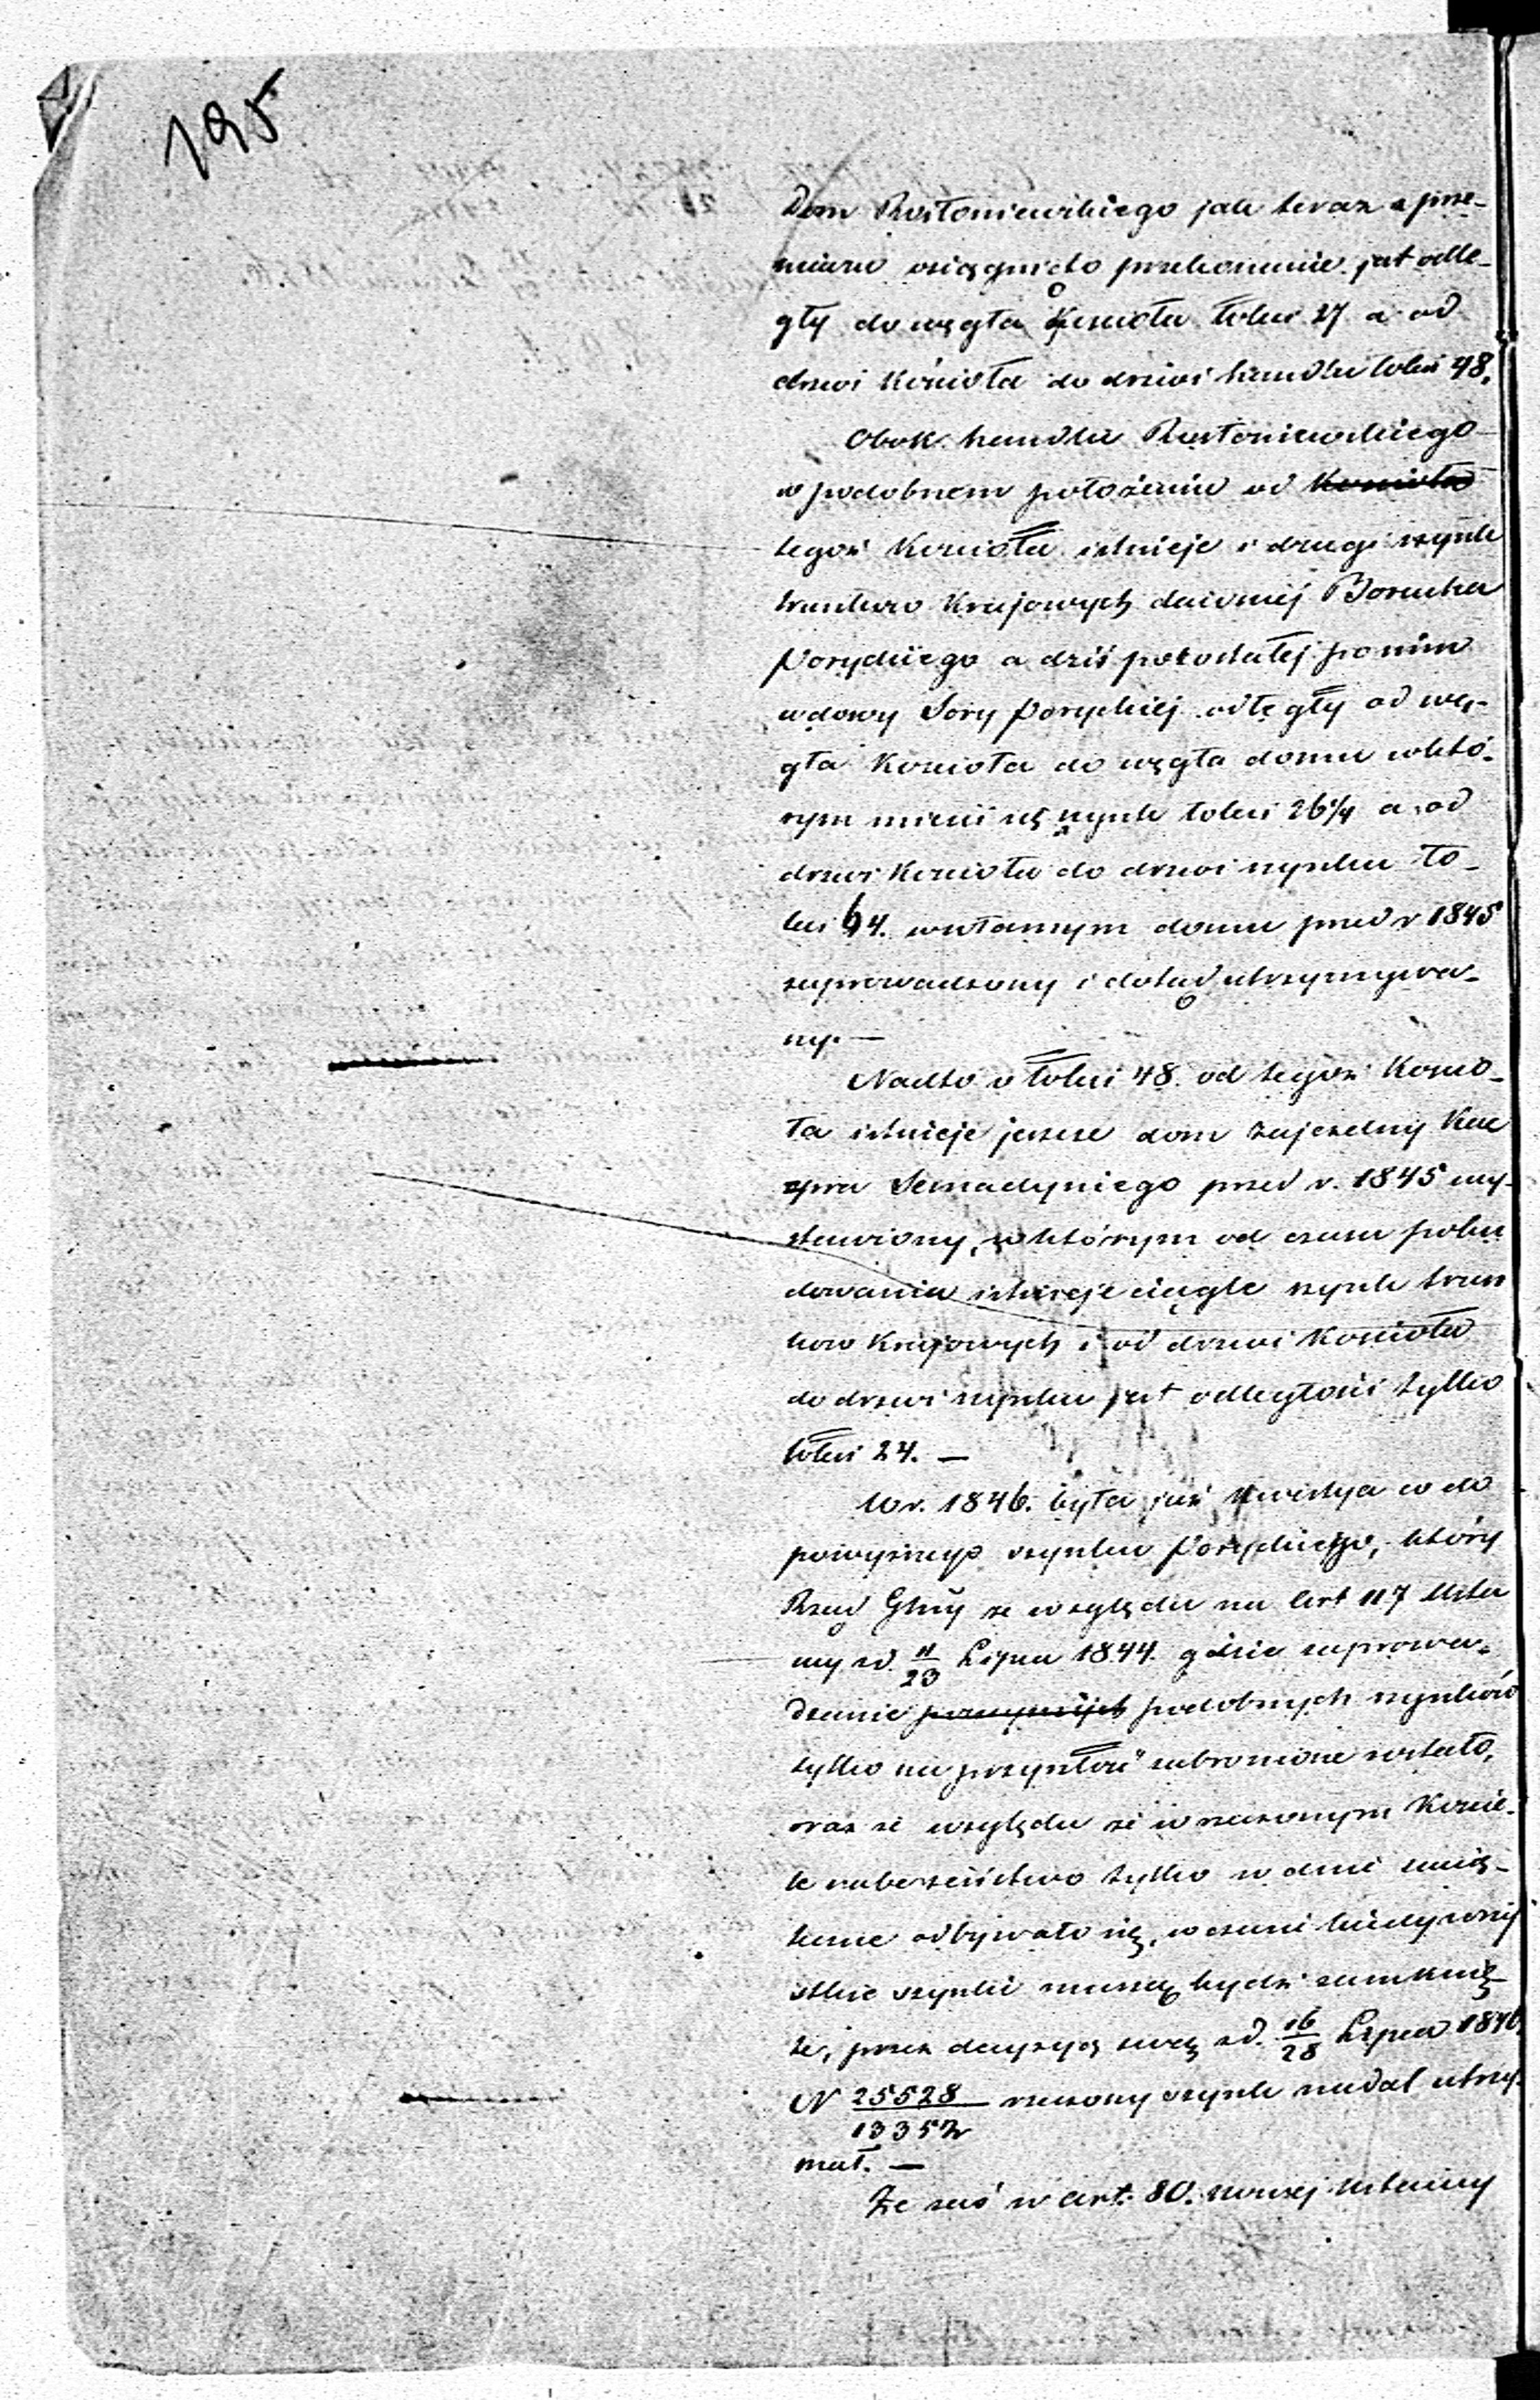 195
Dom Rostoniewskiego jak teraz z prze-
miaru osiągnięto przekonanie jest odle-
gły do węgła Kościoła łokci 27 a od
drzwi Kościoła do drzwi handlu łokci 48.
Obok handlu Rostoniewskiego
w podobnem położeniu od Kościoła
tegoż Kościoła istnieje i drugi szynk
trunków Krajowych dawniej Borucha
Poryckiego a dziś pozostałej po nim
wdowy Sory Poryckiej odległy od wę-
gła Kościoła do węgła domu w któ-
rym mieści się szynk łokci 26¼ a od
drzwi Kościoła do drzwi szynku ło-
kci 64. w własnym domu przed r 1845
zaprowadzony i dotąd utrzymywa-
ny. —
Nadto o łokci 48. od tegoż Kościo-
ła istnieje jeszcze dom zajezdny Kac
spra Semadyniego przed r. 1845 wy-
stawiony, w którym od czasu pobu
dowania istnieje ciągle szynk trun
ków Krajowych i od drzwi Kościoła
do drzwi szynku jest odległości tylko
łokci 24. —
W r. 1846. była już kwestya co do
powyższego szynku Poryckiego, który
Rząd Głny ze względu na Art 117 Usta
wy z d. 11/23 Lipca 1844. gdzie zaprowa-
dzenie podobnych szynków
tylko na przyszłość zabronione zostało,
oraz ze względu że w rzeczonym Koście-
le nabożeństwo tylko w dnie świą-
teczne odbywało się, w czasie kiedy wszy
stkie szynki muszą bydź zamknię-
te, przez decyzyą swą z d. 16/28 Lipca 1846.
N 25528/13352 rzeczony szynk nadal utrzy-
mał. —
Że zaś w Art. 80. nowej Ustawy